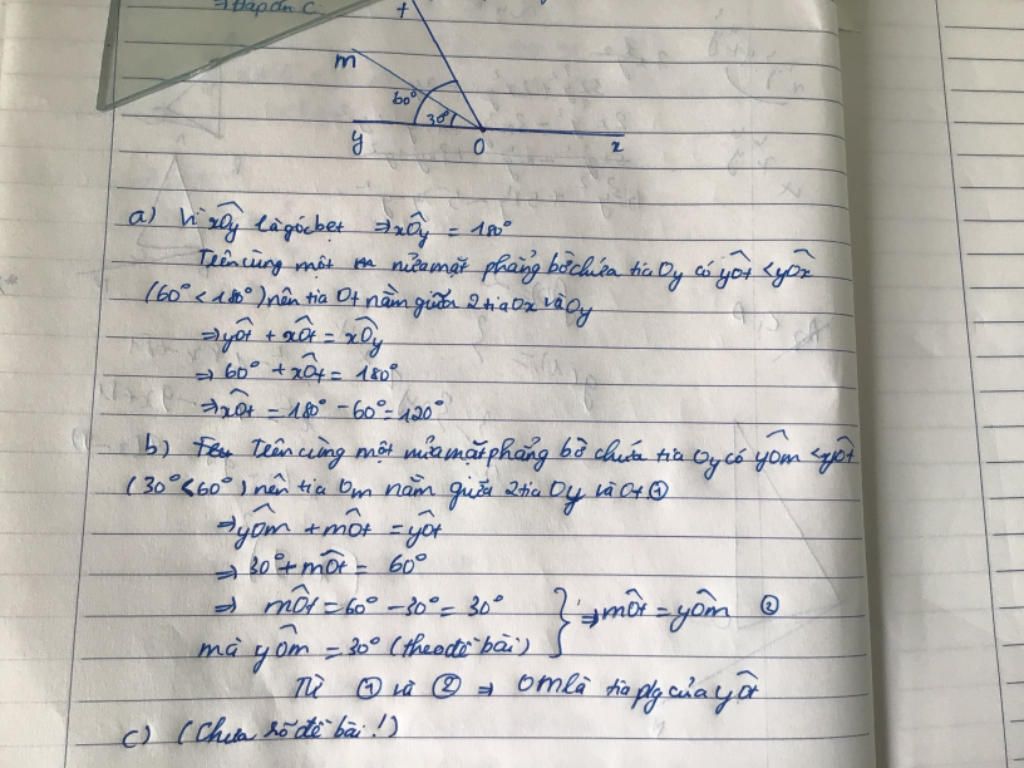 ⇒Đáp án C
t
m
60°
30°
y O x
a) Vì xÔy là góc bẹt ⇒ xÔy = 180°
Trên cùng một nửa mặt phẳng bờ chứa tia Oy có yÔt < yÔx
(60° < 180°) nên tia Ot nằm giữa 2 tia Ox và Oy
⇒ yÔt + xÔt = xÔy
⇒ 60° + xÔt = 180°
⇒ xÔt = 180° - 60° = 120°
b) Trên cùng một nửa mặt phẳng bờ chứa tia Oy có yÔm < yÔt
(30° < 60°) nên tia Om nằm giữa 2 tia Oy và Ot ①
⇒ yÔm + mÔt = yÔt
⇒ 30° + mÔt = 60°
⇒ mÔt = 60° - 30° = 30° } ⇒ mÔt = yÔm ②
mà yÔm = 30° (theo đề bài)
Từ ① và ② ⇒ Om là tia p/g của yÔt
c) (Chưa rõ đề bài!)